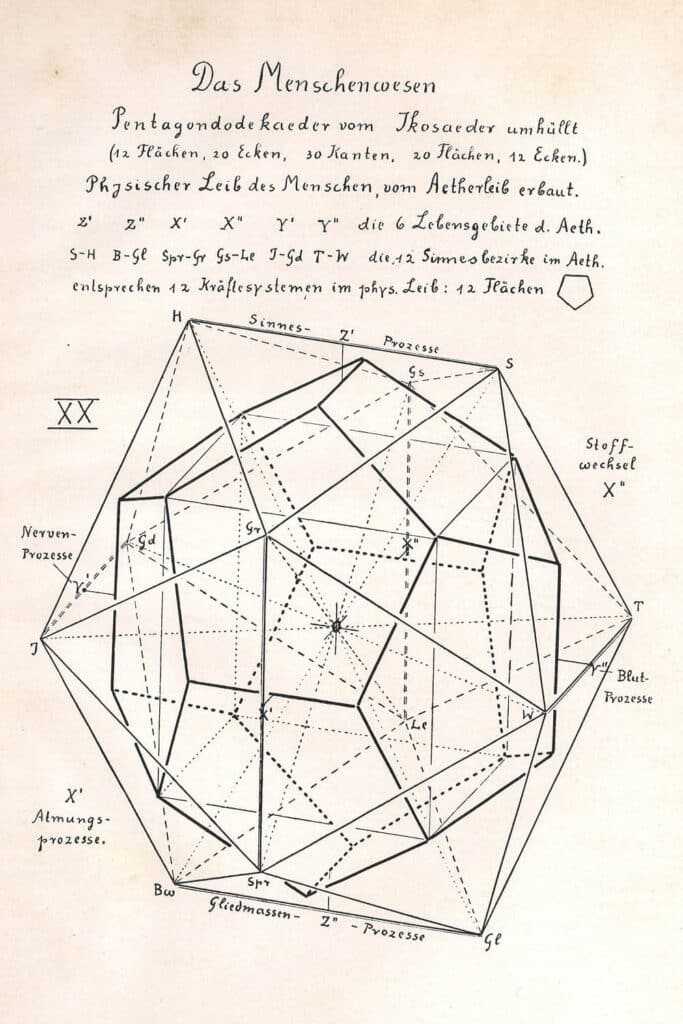 Das Menschenwesen
Pentagondodekaeder vom Ikosaeder umhüllt
(12 Flächen, 20 Ecken, 30 Kanten, 20 Flächen, 12 Ecken.)
Physischer Leib des Menschen, vom Aetherleib erbaut.
Z' Z" X' X" Y' Y" die 6 Lebensgebiete d. Aeth.
S-H B-Gl Spr-Gr Gs-Le I-Gd T-W die 12 Sinnesbezirke im Aeth.
entsprechen 12 Kräftesystemen im phys. Leib: 12 Flächen
H
Sinnes-
Z'
Prozesse
S
Gs
XX
Stoff-
wechsel
X"
Nerven-
Prozesse
Y'
Gd
Gr
X"
I
O
T
Y"
Blut-
Prozesse
X'
W
Le
X'
Atmungs-
prozesse.
Bw
Spr
Gliedmassen-
Z"
-Prozesse
Gl